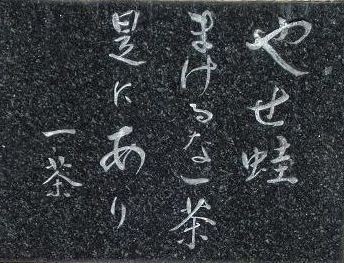 やせ蛙
まけるな一茶
是にあり
一茶